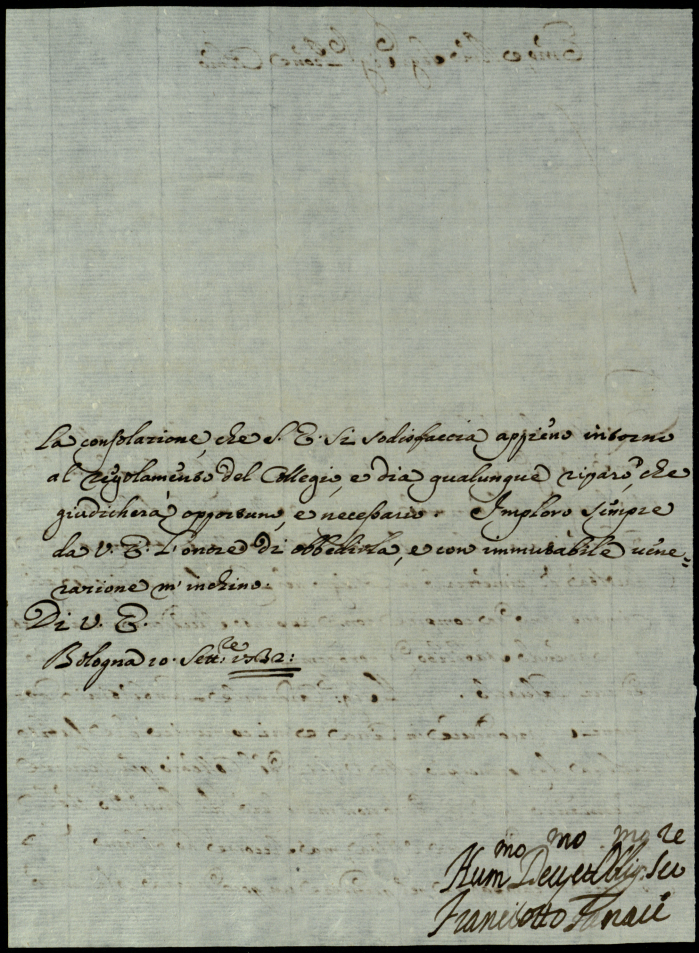 La consolazione, che S. E. si sodisfaccia appieno intorno
al regolamento del Collegio, e dia qualunque riparo, che
giudicherà opportuno, e necessario. Imploro sempre
da V. E. l'onore di obbedirla, e con immutabile vene=
razione m'inchino.
Di V. E.
Bologna 10. Sett.re 1742:
Hum.mo Dev.mo Obblig.mo Ser.re
Francesco